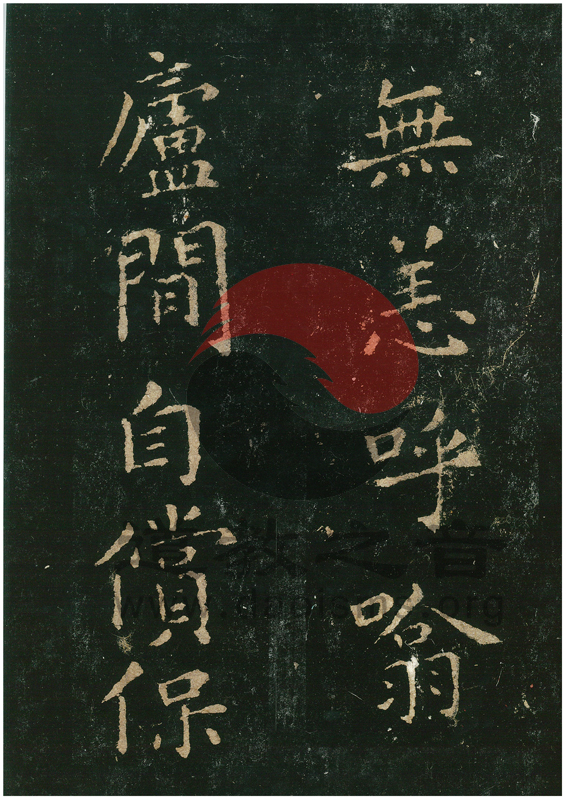 無恙呼噏
廬間自償保
道教之音
www.daoisms.org